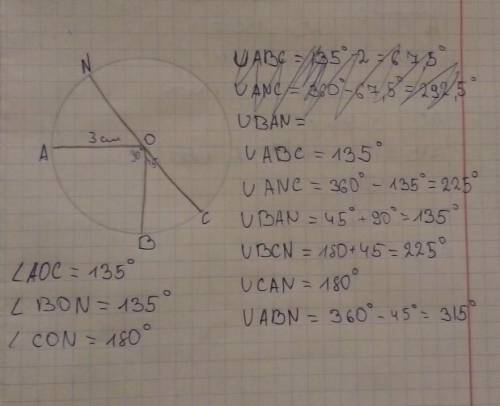 ∪ABC = 135° - 2 = 67,5°
∪ANC = 360° - 67,5° = 292,5°
∪BAN =
∪ABC = 135°
∪ANC = 360° - 135° = 225°
∪BAN = 45° + 90° = 135°
∪BCN = 180 + 45 = 225°
∪CAN = 180°
∪ABN = 360° - 45° = 315°
N
3 cm
O
A
90
C
B
∠AOC = 135°
∠BON = 135°
∠CON = 180°